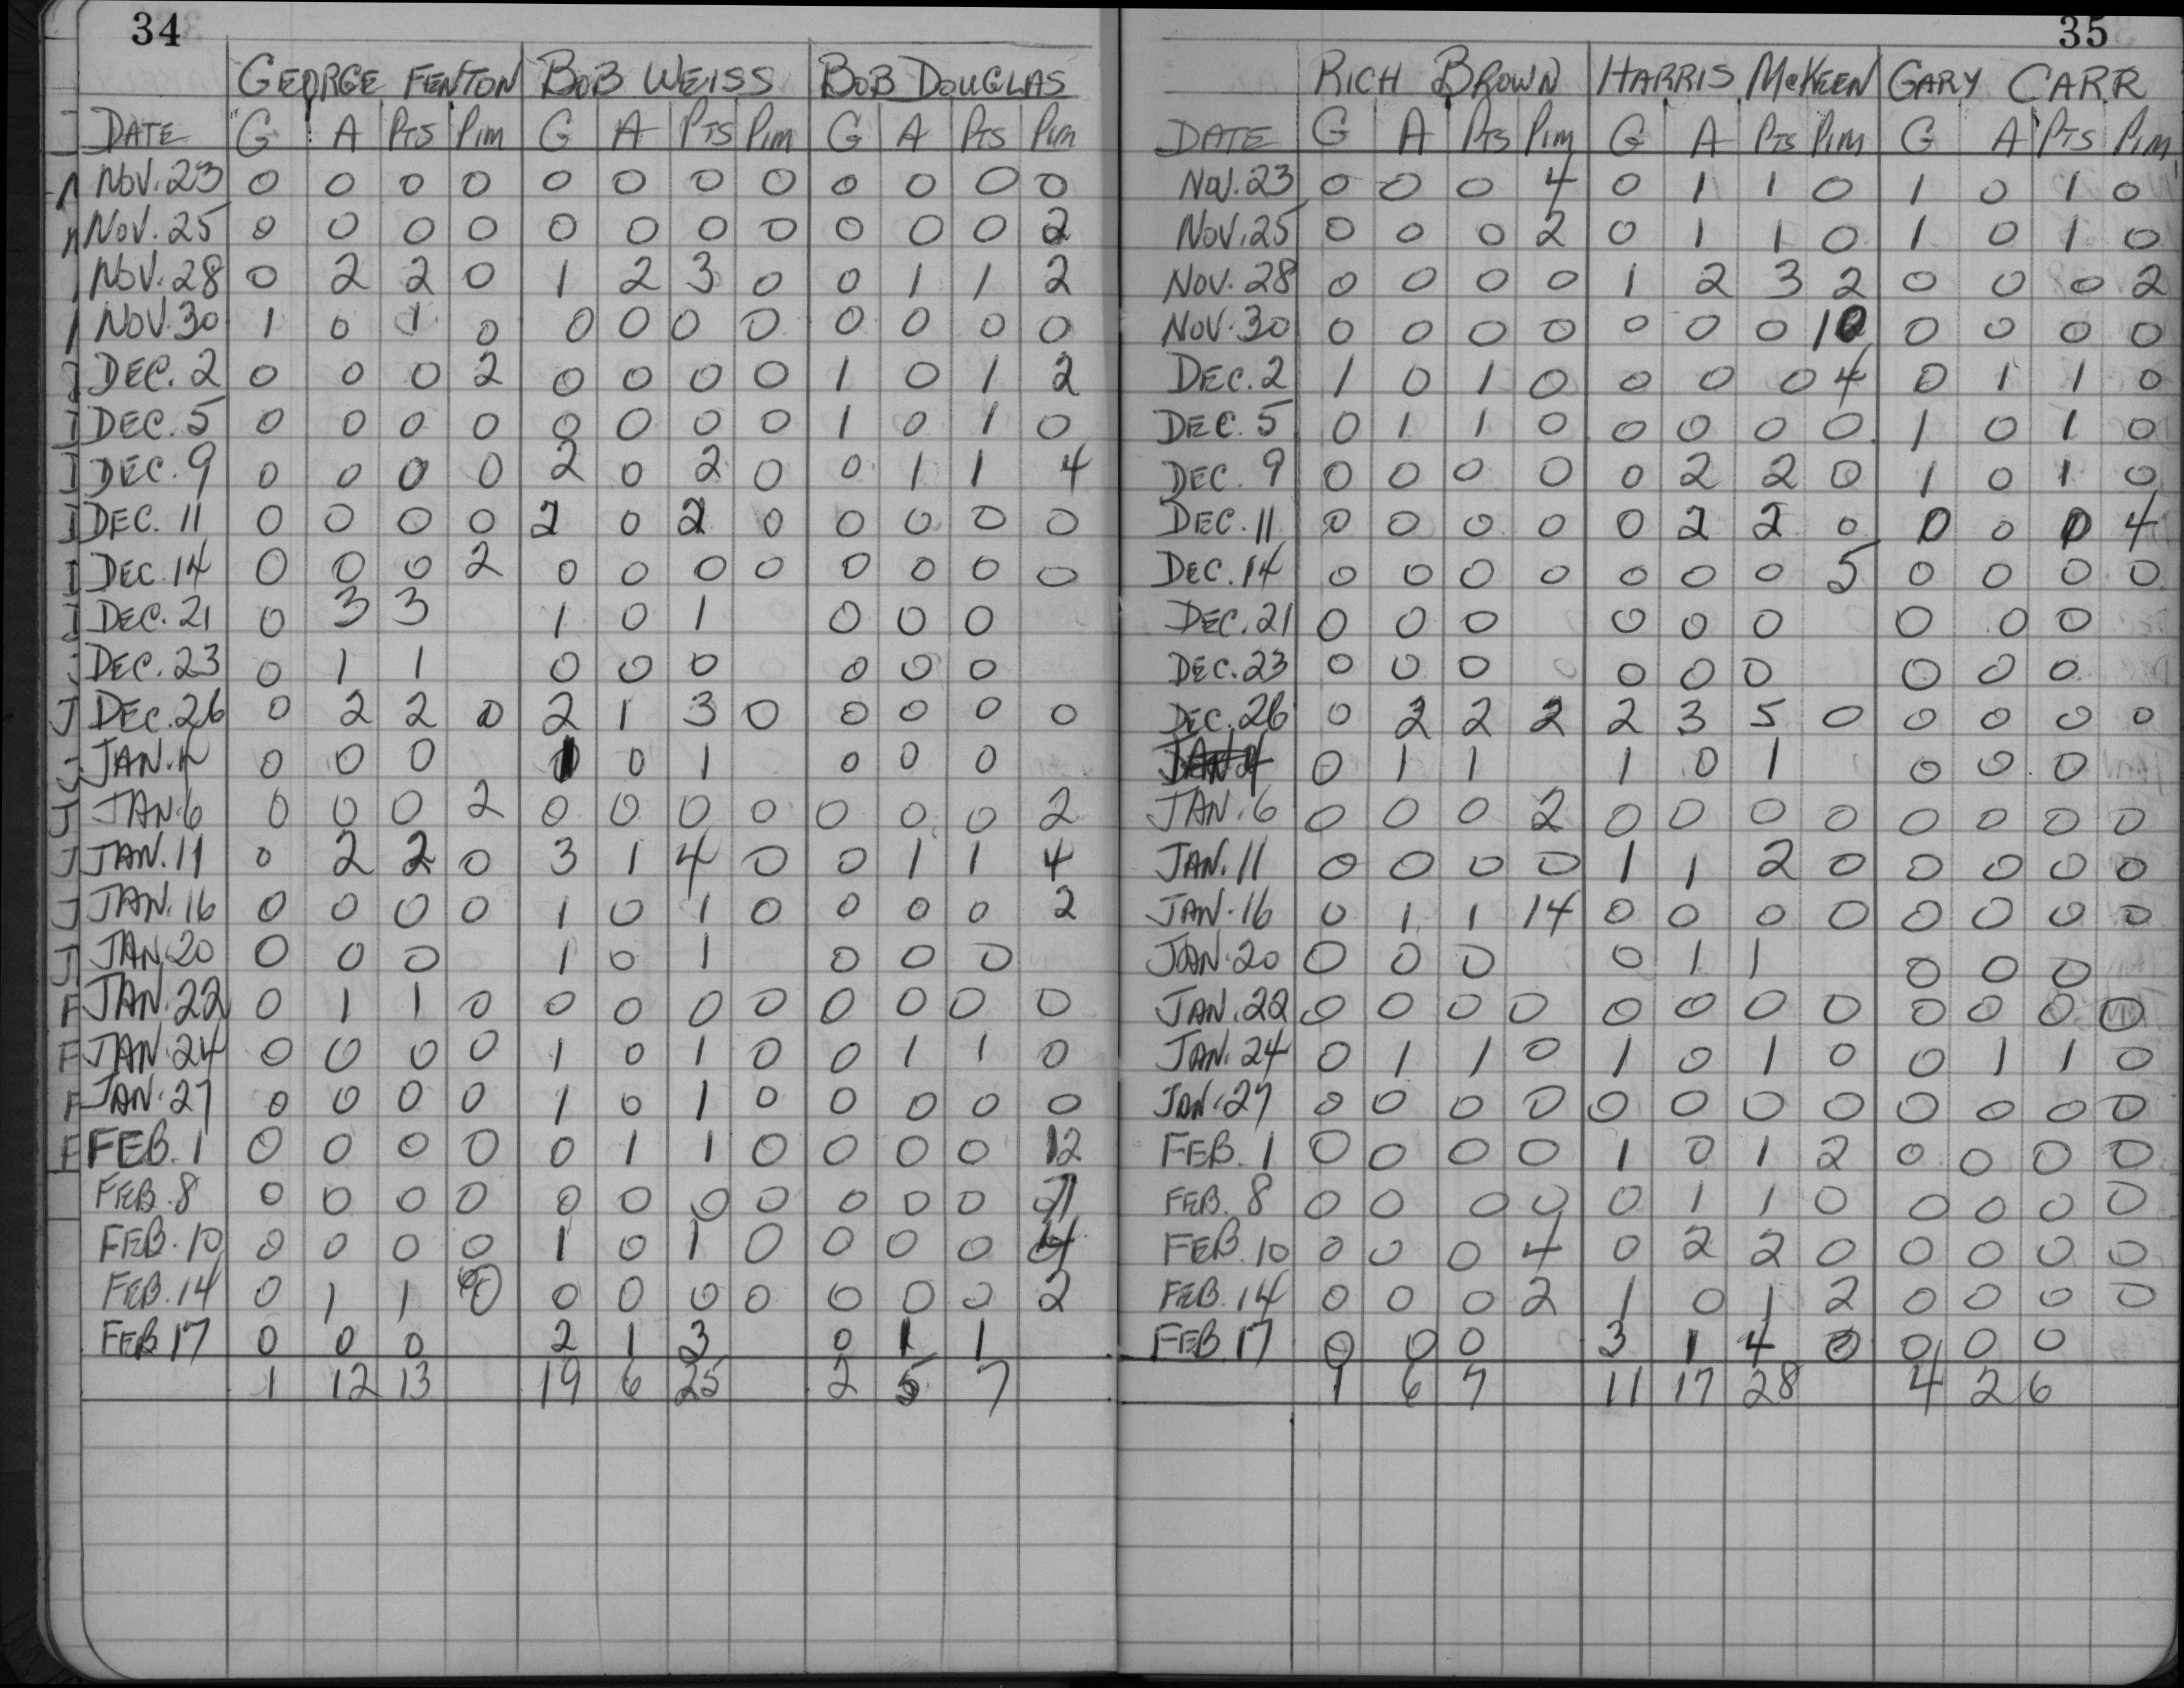 34
GEORGE FENTON BOB WEISS BOB DOUGLAS
DATE G A PTS PIM G A PTS PIM G A PTS PIM
NOV. 23 0 0 0 0 0 0 0 0 0 0 0 0
NOV. 25 0 0 0 0 0 0 0 0 0 0 0 2
NOV. 28 0 2 2 0 1 2 3 0 0 1 1 2
NOV. 30 1 0 1 0 0 0 0 0 0 0 0 0
DEC. 2 0 0 0 2 0 0 0 0 1 0 1 2
DEC. 5 0 0 0 0 0 0 0 0 1 0 1 0
DEC. 9 0 0 0 0 2 0 2 0 0 1 1 4
DEC. 11 0 0 0 0 2 0 2 0 0 0 0 0
DEC. 14 0 0 0 2 0 0 0 0 0 0 0 0
DEC. 21 0 3 3 1 0 1 0 0 0
DEC. 23 0 1 1 0 0 0 0 0 0
DEC. 26 0 2 2 0 2 1 3 0 0 0 0 0
JAN. 4 0 0 0 1 0 1 0 0 0
JAN. 6 0 0 0 2 0 0 0 0 0 0 0 2
JAN. 11 0 2 2 0 3 1 4 0 0 1 1 4
JAN. 16 0 0 0 0 1 0 1 0 0 0 0 2
JAN. 20 0 0 0 1 0 1 0 0 0
JAN. 22 0 1 1 0 0 0 0 0 0 0 0 0
JAN. 24 0 0 0 0 1 0 1 0 0 1 1 0
JAN. 27 0 0 0 0 1 0 1 0 0 0 0 0
FEB. 1 0 0 0 0 0 1 1 0 0 0 0 12
FEB. 8 0 0 0 0 0 0 0 0 0 0 0
FEB. 10 0 0 0 0 1 0 1 0 0 0 0
FEB. 14 0 1 1 0 0 0 0 0 0 0 2
FEB 17 0 0 0 2 1 3 0 1 1
1 12 13 19 6 25 2 5 7
35
RICH BROWN HARRIS McKEEN GARY CARR
DATE G A PTS PIM G A PTS PIM G A PTS PIM
NOV. 23 0 0 0 4 0 1 1 0 1 0 1 0
NOV. 25 0 0 0 2 0 1 1 0 1 0 1 0
NOV. 28 0 0 0 0 1 2 3 2 0 0 0 2
NOV. 30 0 0 0 0 0 0 0 10 0 0 0 0
DEC. 2 1 0 1 0 0 0 0 4 0 1 1 0
DEC. 5 0 1 1 0 0 0 0 0 1 0 1 0
DEC. 9 0 0 0 0 0 2 2 0 1 0 1 0
DEC. 11 0 0 0 0 0 2 2 0 0 0 0 4
DEC. 14 0 0 0 0 0 0 0 5 0 0 0 0
DEC. 21 0 0 0 0 0 0 0 0 0
DEC. 23 0 0 0 0 0 0 0 0 0
DEC. 26 0 2 2 2 2 3 5 0 0 0 0 0
JAN. 4 0 1 1 1 0 1 0 0 0
JAN. 6 0 0 0 2 0 0 0 0 0 0 0 0
JAN. 11 0 0 0 0 1 1 2 0 0 0 0 0
JAN. 16 0 1 1 14 0 0 0 0 0 0 0 0
JAN. 20 0 0 0 0 1 1 0 0 0
JAN. 22 0 0 0 0 0 0 0 0 0 0 0 0
JAN. 24 0 1 1 0 1 0 1 0 0 1 1 0
JAN. 27 0 0 0 0 0 0 0 0 0 0 0 0
FEB. 1 0 0 0 0 1 0 1 2 0 0 0 0
FEB. 8 0 0 0 0 0 1 1 0 0 0 0 0
FEB. 10 0 0 0 4 0 2 2 0 0 0 0 0
FEB. 14 0 0 0 2 1 0 1 2 0 0 0 0
FEB. 17 0 0 0 3 1 4 0 0 0
1 6 7 11 17 28 4 2 6